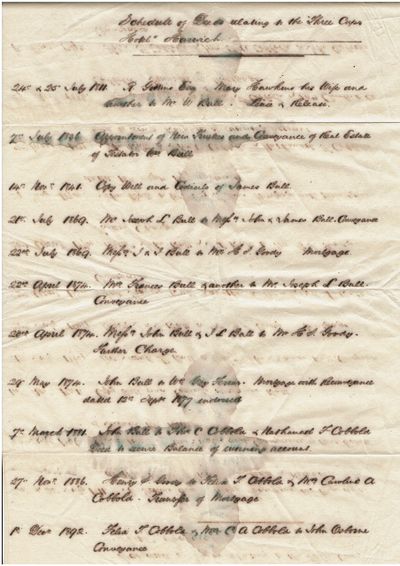 Schedule of Deeds relating to the Three Cups
Hotel Harwich
24th & 25th July 1811. R. Esq & Mary Hawkins his Wife and
another to Mr W Bull. Lease & Release.
7th July 1836 Appointment of New Trustee and Conveyance of Real Estate
of Testator Wm Bull
14th Novr 1841. Copy Will and Codicils of James Bull.
21st July 1869. Mr Joseph L Bull to Messrs John & James Bull. Conveyance
22nd July 1869. Messrs J & J Bull to Mr H S Mortgage
22nd April 1874. Mrs Frances Bull & another to Mr Joseph L Bull.
Conveyance
April 1874. Messrs John Bull & J L Bull to Mr H S
Further Charge.
29 May 1874. John Bull to Mortgage with Reconveyance
dated 12th Septr 1877 endorsed
7th March 1881. John Bull to C Cobbold & Nathanael F Cobbold
Deed to secure Balance of running account.
27th Novr 1886. Henry S to Felix T Cobbold & Mrs Caroline A
Cobbold. Transfer of Mortgage
1st Decr 1892. Felix T Cobbold & Mrs C A Cobbold to John Osborne
Conveyance